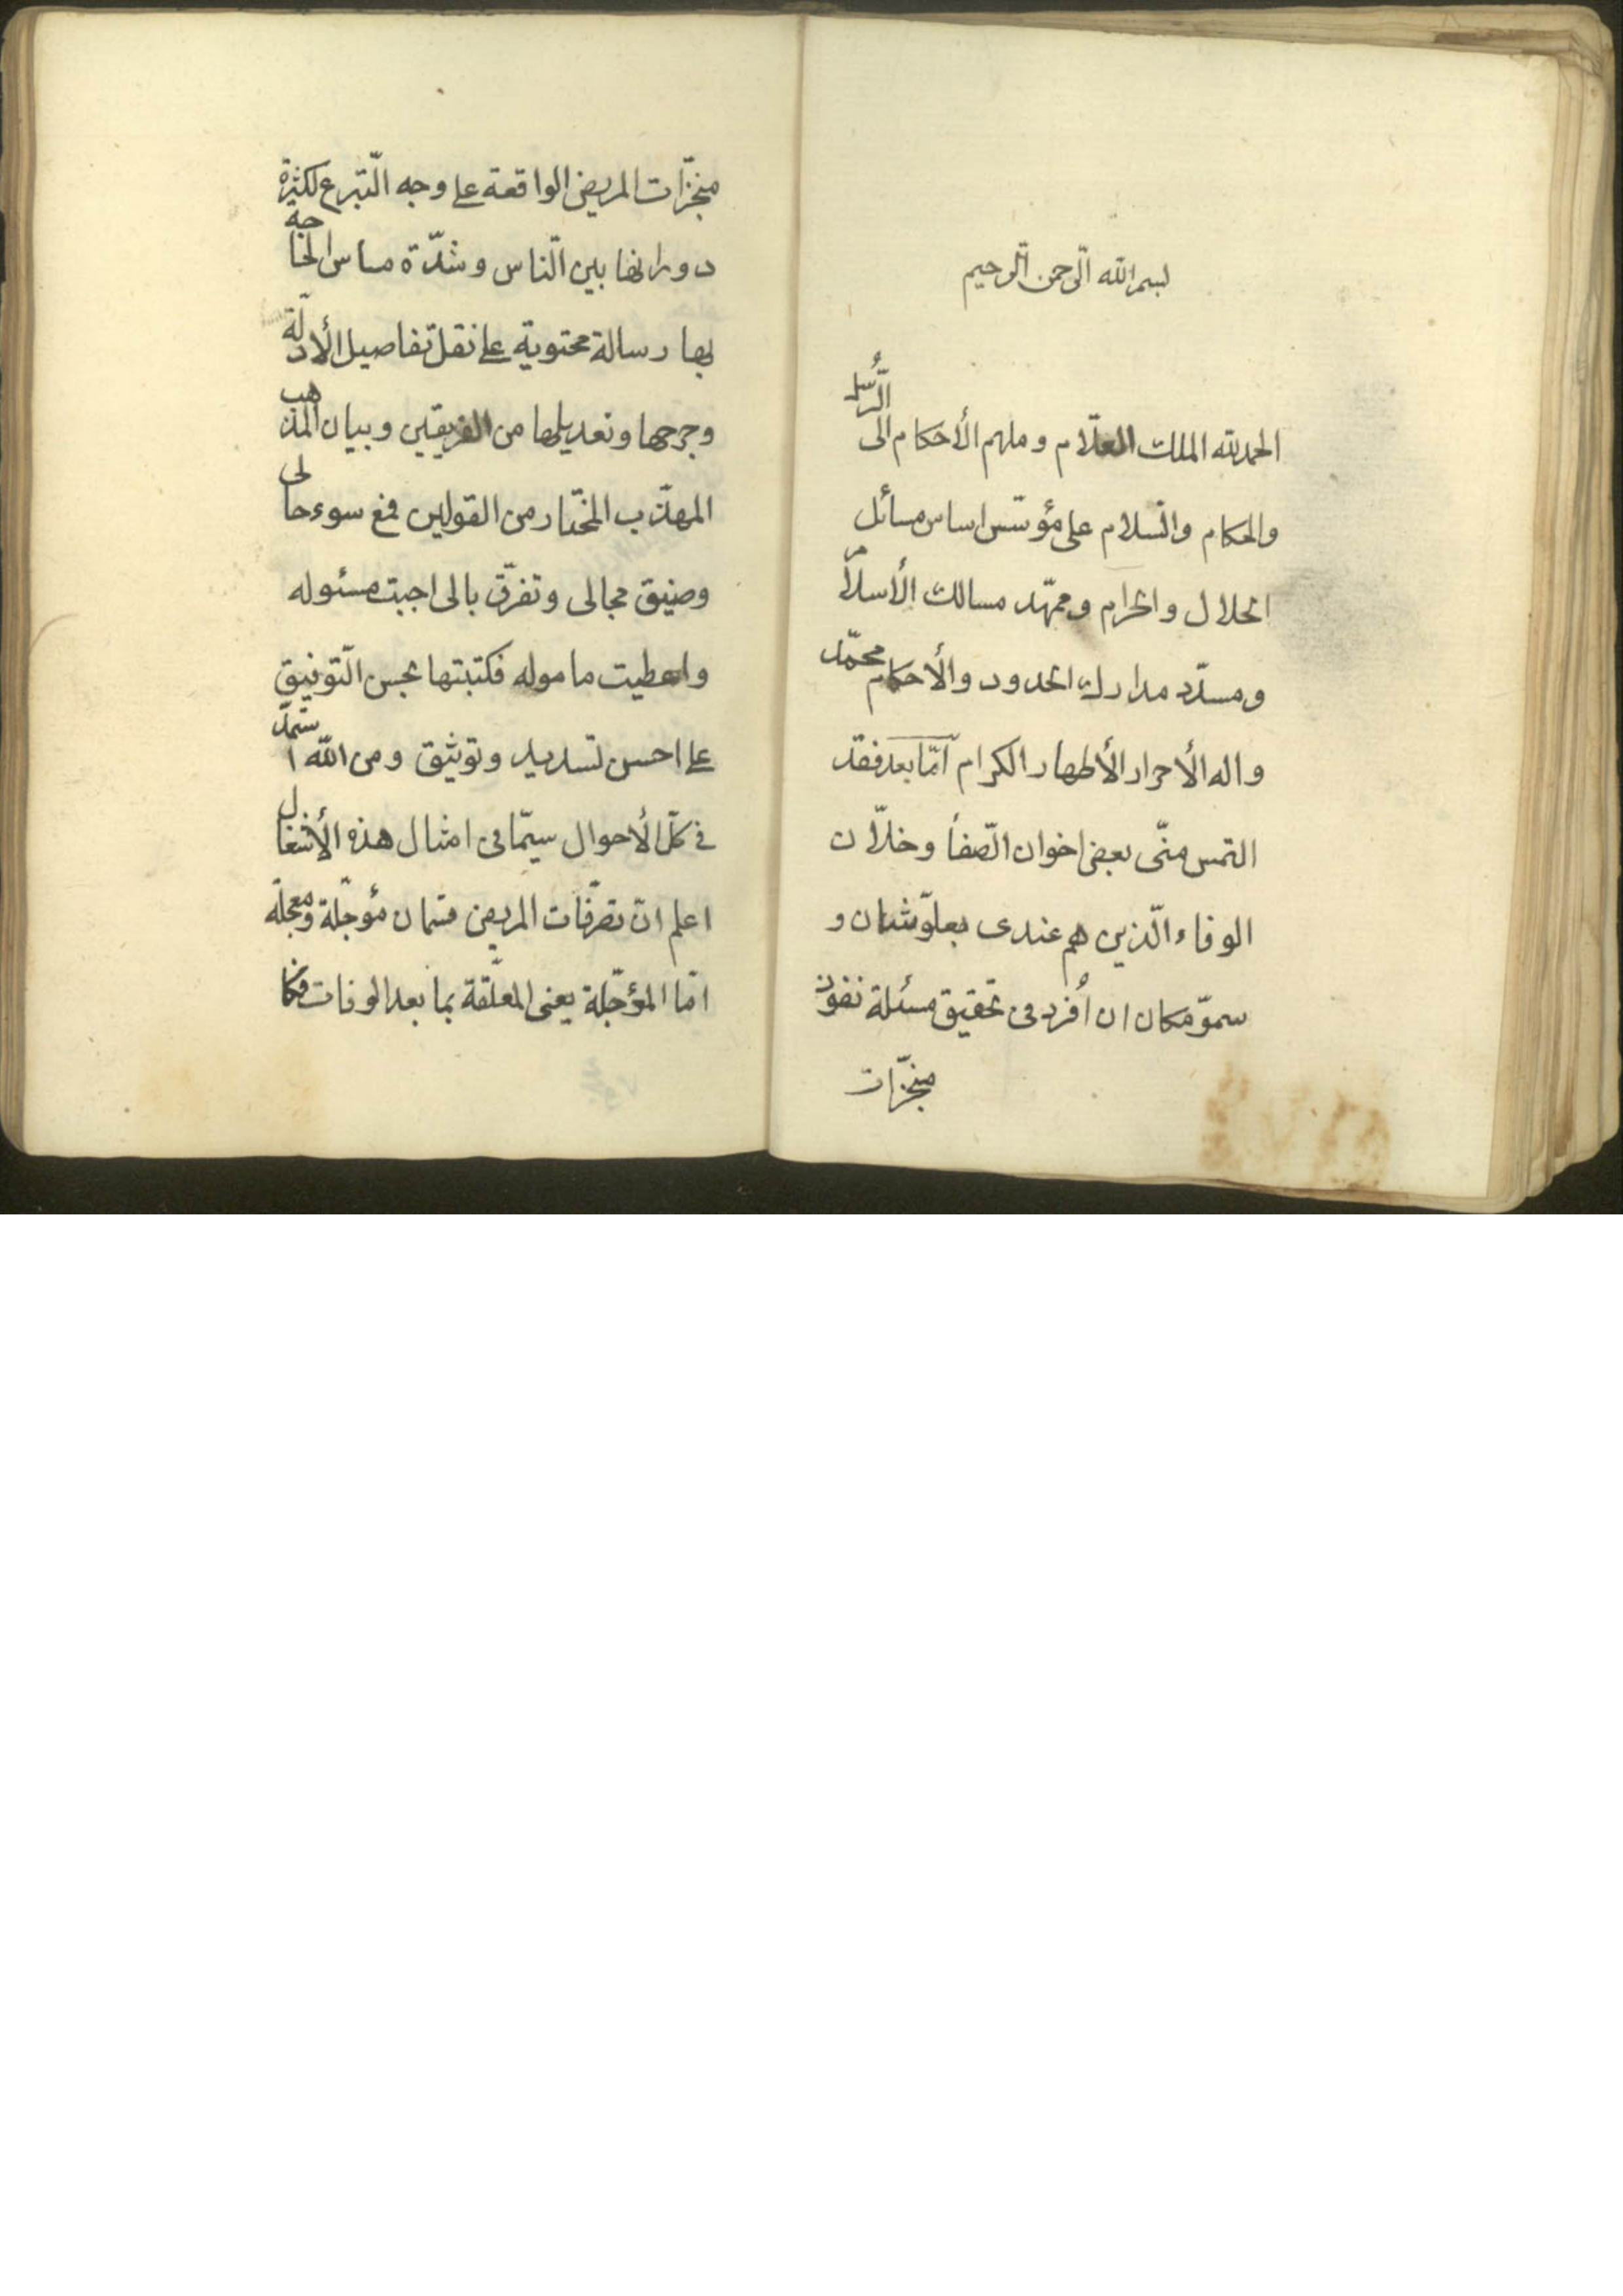 بسم الله الرحمن الرحيم
الحمد لله الملك العلّام وملهم الأحكام الى الرُّسل
والحكام والسّلام على مؤسّس اساس مسائل
الحلال والحرام وممهّد مسالك الأسلام
ومسدّد مدارك الحدود والأحكام محمّد
واله الأحرار الأطهار الكرام امّا بعد فقد
التمس منّى بعض اخوان الصّفأ وخلّان
الوفاء الّذين هم عندى بعلوّ شان و
سموّ مكان ان أُفرد فى تحقيق مسئلة نفوذ
منجّزات
منجّزات المريض الواقعة على وجه التّبرع لكثرة
دورانها بين النّاس وشدّة مساس الحاجة
بها رسالة محتوية على نقل تفاصيل الأدلّة
وجرحها وتعديلها من الفريقين وبيان المذهب
المهذّب المختار من القولين فمع سوء حالى
وضيق مجالى وتفرّق بالى اجبت مسئوله
واعطيت ماموله فكتبتها بحسن التّوفيق
على احسن تسديد وتوثيق ومن الله استمدّ
فى كلّ الأحوال سيّما فى امثال هذه الأشغال
اعلم انّ تصرّفات المريض قسمان مؤجّلة ومعجلة
امّا المؤجّلة يعنى المعلّقة بما بعد الوفات فكا